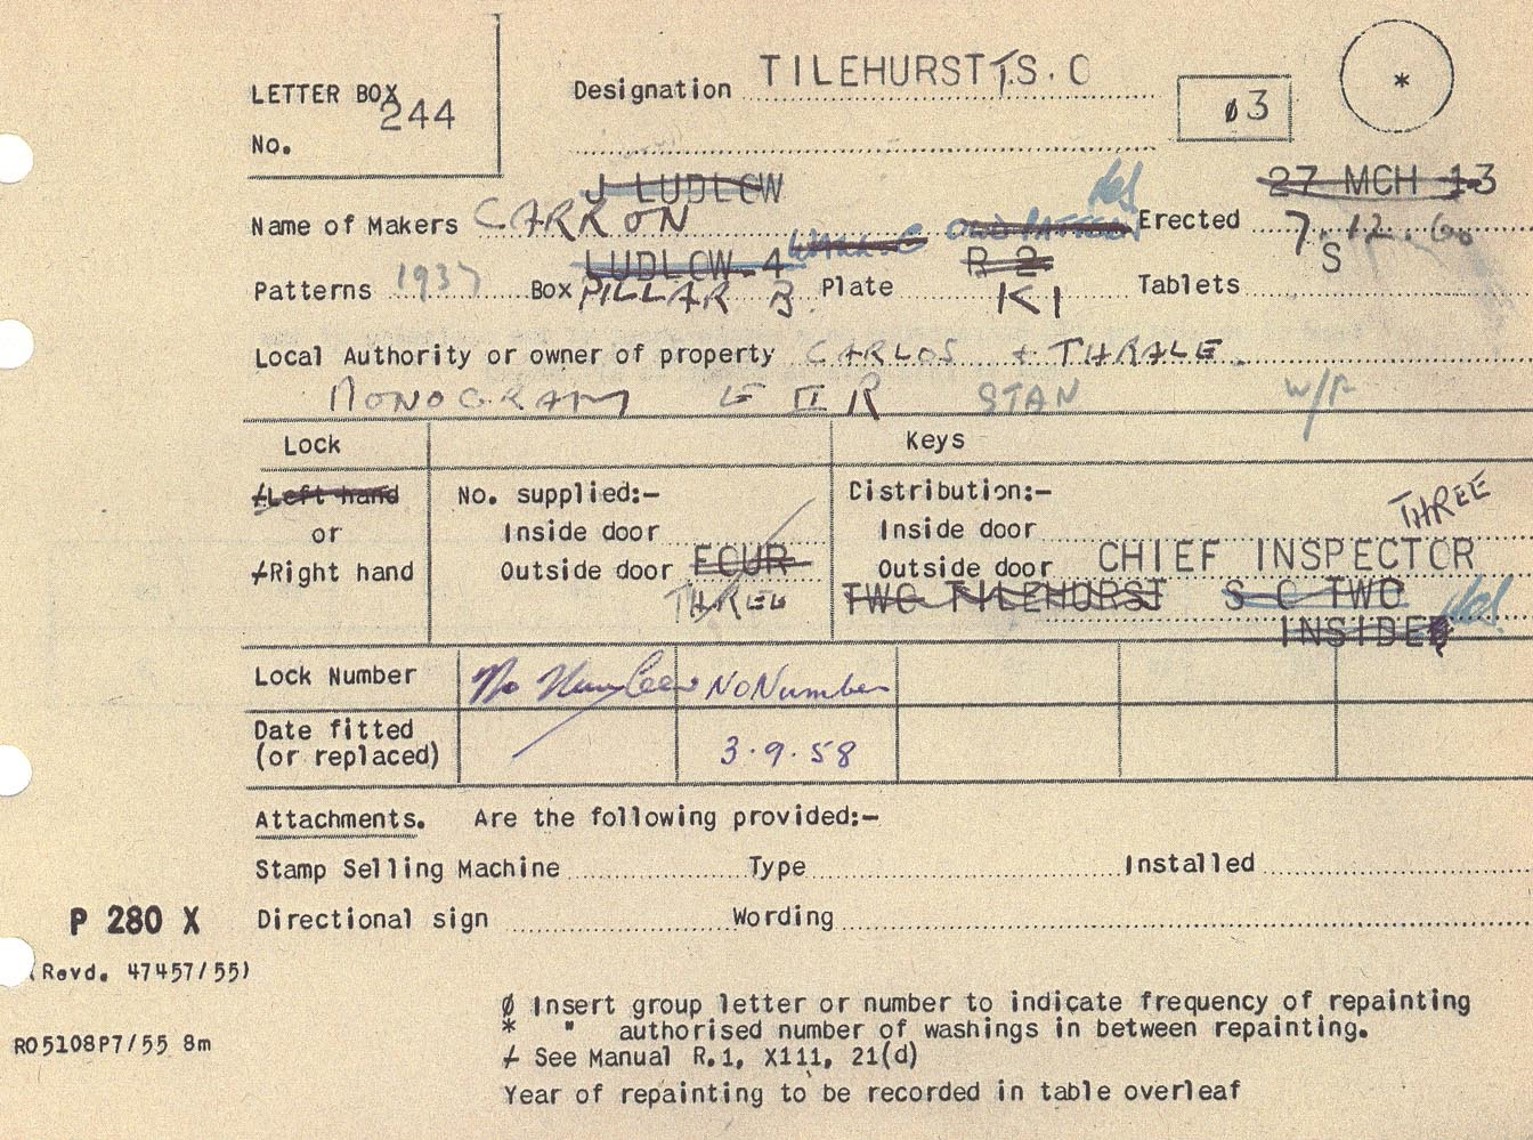 LETTER BOX 244
No.
Designation TILEHURST T.S.O
ø3
*
J LUDLOW
27 MCH 13
Name of Makers CARRON OLD PATTERN Erected 7.12.60
LUDLOW-4 WALL C R 2 S
Patterns 1937 Box PILLAR B Plate K1 Tablets
Local Authority or owner of property CARLOS + THRALE.
MONOGRAM E II R STAN W/P
Lock
Keys
⌿Left hand
or
⌿Right hand
No. supplied:-
Inside door
Outside door FOUR
THREE
Distribution:-
THREE
Inside door
Outside door CHIEF INSPECTOR
TWO TILEHURST S O TWO
INSIDE
Lock Number No Number No Number
Date fitted
(or replaced) 3.9.58
Attachments. Are the following provided:-
Stamp Selling Machine Type Installed
P 280 X Directional sign Wording
(Revd. 47457/55)
RO5108P7/55 8m
ø Insert group letter or number to indicate frequency of repainting
* " authorised number of washings in between repainting.
⌿ See Manual R.1, X111, 21(d)
Year of repainting to be recorded in table overleaf